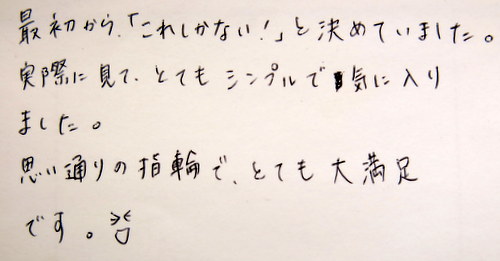 最初から、「これしかない!」と決めていました。
実際に見て、とてもシンプルで気に入り
ました。
思い通りの指輪で、とても大満足
です。